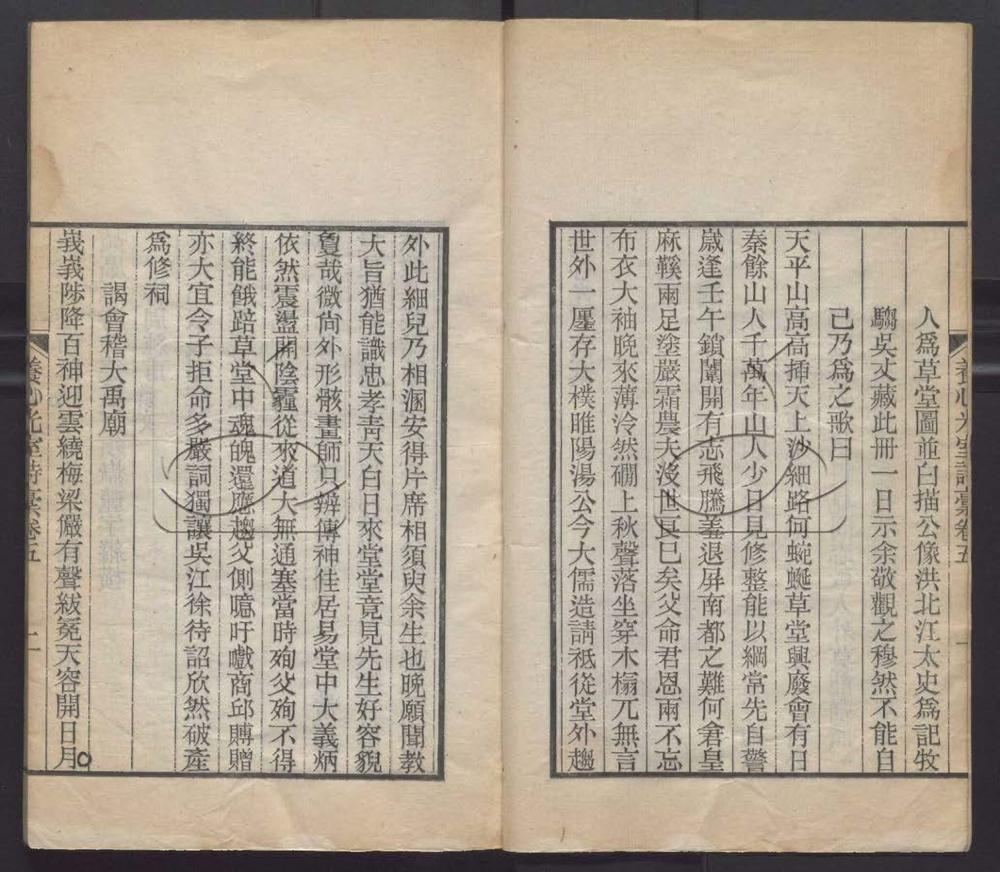 人爲草堂圖並白描公像洪北江太史爲記牧
騶吳丈藏此冊一日示余敬觀之穆然不能自
己乃爲之歌曰
天平山高高插天上沙細路何蜿蜒草堂興廢會有日
秦餘山人千萬年山人少日見修整能以綱常先自警
嵗逢壬午鎖闈開有志飛騰羞退屏南都之難何倉皇
麻鞵兩足塗嚴霜農夫沒世良已矣父命君恩兩不忘
布衣大袖晚來薄泠然磵上秋聲落坐穿木榻兀無言
世外一廛存大樸睢陽湯公今大儒造請祗從堂外趨
養心光室詩稾卷五
一
外此細兒乃相溷安得片席相須臾余生也晚願聞教
大旨猶能識忠孝靑天白日來堂堂竟見先生好容貌
敻哉微尙外形骸畫師只辨傳神佳居易堂中大義炳
依然震盪開陰霾從來道大無通塞當時殉父殉不得
終能餓踣草堂中魂魄還應趨父側噫吁嚱商邱賻贈
亦大宜令子拒命多嚴詞獨讓吳江徐待詔欣然破產
爲修祠
謁會稽大禹廟
峩峩陟降百神迎雲繞梅梁儼有聲紱冕天容開日月
養心光室詩稾卷五
二